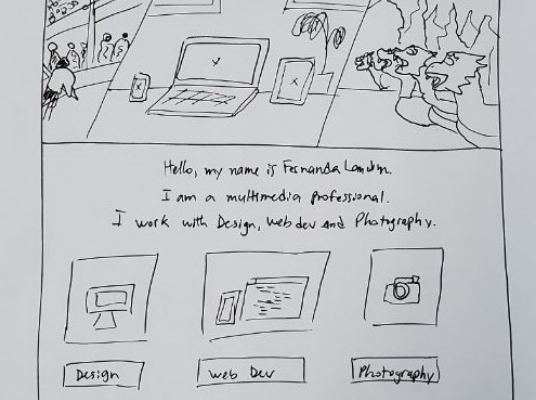 Hello, my name is Fernanda Landim.
I am a multimedia professional.
I work with Design, Web dev and Photography.
Design
Web Dev
Photography